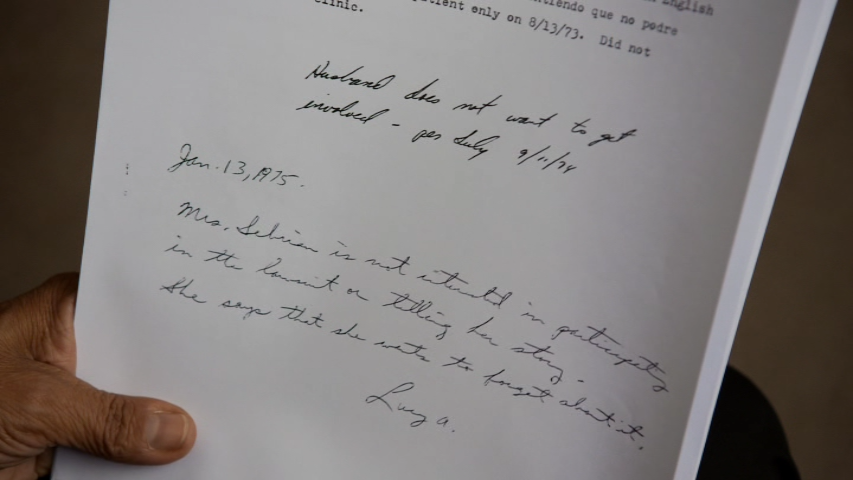 English
entiendo que no podre
patient only on 8/13/73. Did not
clinic.
Husband does not want to get
involved - per July 9/11/74
Jan. 13, 1975.
Mrs. is not interested in participating
in the lawsuit or telling her story.
She says that she wants to forget about it.
Lucy A.